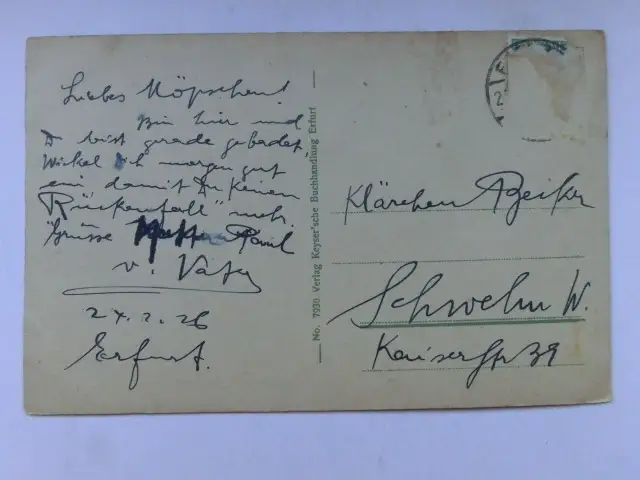 Liebes Möpschen!
Bin hier und
D bist gerade gebadet,
Wickel Dich morgen gut
ein damit Du keinen
"Rückenfall" mehr.
Grüsse Paul
v. Vater
Erfurt.
No. 7930 Verlag Keyser'sche Buchhandlung Erfurt
Klärchen
Schwelm W.
Kaiserstr 39